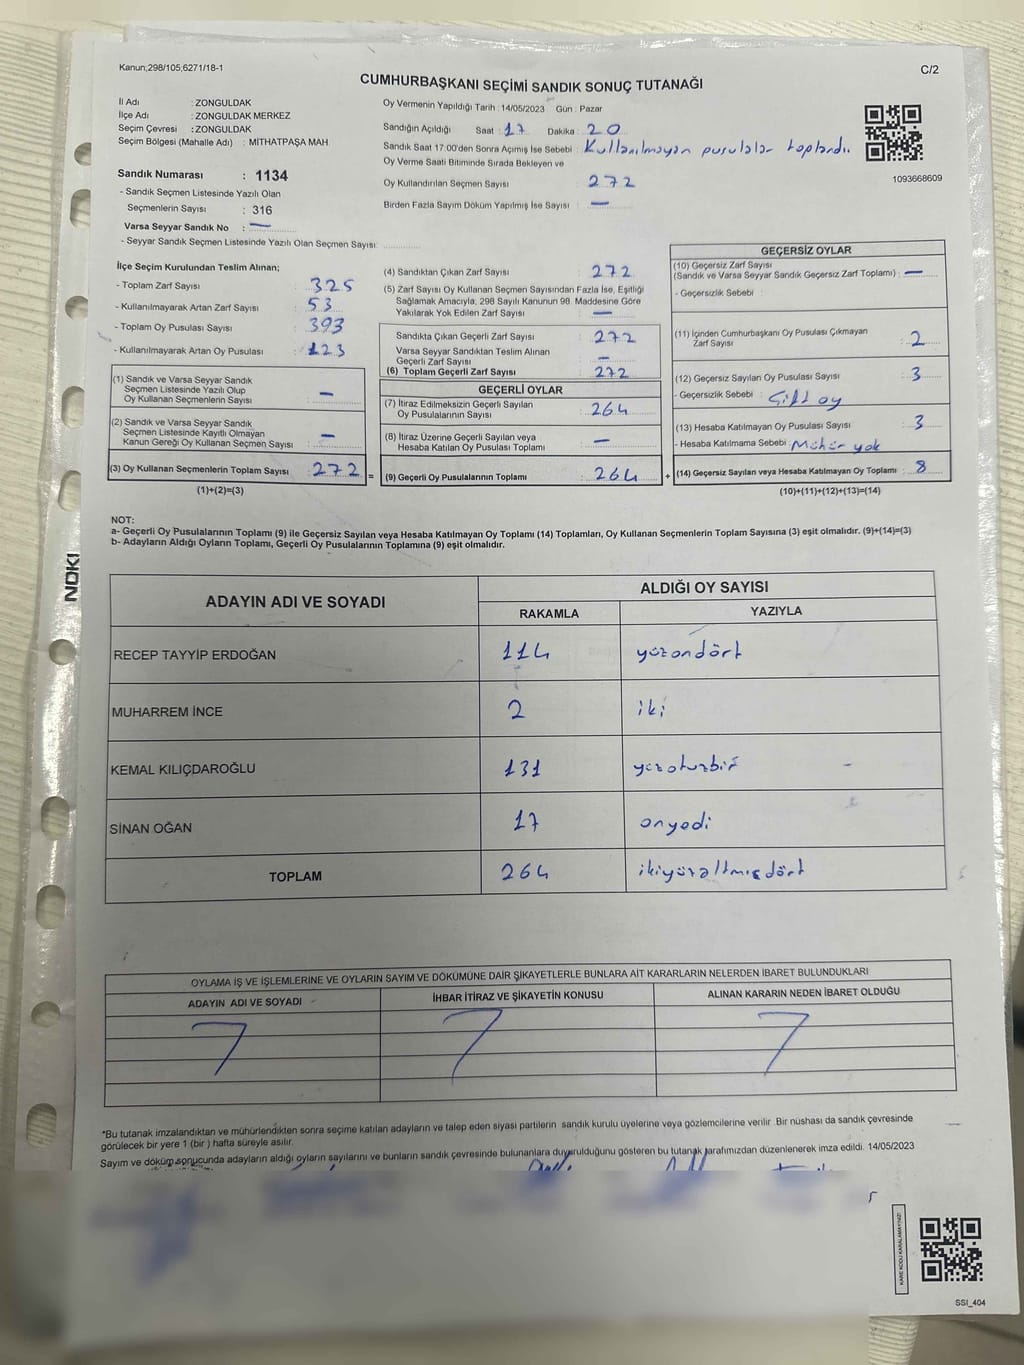 Kanun;298/105,6271/18-1
C/2
CUMHURBAŞKANI SEÇİMİ SANDIK SONUÇ TUTANAĞI
İl Adı : ZONGULDAK
İlçe Adı : ZONGULDAK MERKEZ
Seçim Çevresi : ZONGULDAK
Seçim Bölgesi (Mahalle Adı) : MİTHATPAŞA MAH
Sandık Numarası : 1134
- Sandık Seçmen Listesinde Yazılı Olan
Seçmenlerin Sayısı : 316
Varsa Seyyar Sandık No : —
- Seyyar Sandık Seçmen Listesinde Yazılı Olan Seçmen Sayısı:
Oy Vermenin Yapıldığı Tarih : 14/05/2023 Gün : Pazar
Sandığın Açıldığı Saat : 17 Dakika : 20
Sandık Saat 17:00'den Sonra Açımış İse Sebebi : Kullanılmayan pusulalar toplandı.
Oy Verme Saati Bitiminde Sırada Bekleyen ve
Oy Kullandırılan Seçmen Sayısı : 272
Birden Fazla Sayım Döküm Yapılmış İse Sayısı : —
1093668609
İlçe Seçim Kurulundan Teslim Alınan;
- Toplam Zarf Sayısı : 325
- Kullanılmayarak Artan Zarf Sayısı : 53
- Toplam Oy Pusulası Sayısı : 393
- Kullanılmayarak Artan Oy Pusulası : 123
(1) Sandık ve Varsa Seyyar Sandık
Seçmen Listesinde Yazılı Olup
Oy Kullanan Seçmenlerin Sayısı : —
(2) Sandık ve Varsa Seyyar Sandık
Seçmen Listesinde Kayıtlı Olmayan
Kanun Gereği Oy Kullanan Seçmen Sayısı : —
(3) Oy Kullanan Seçmenlerin Toplam Sayısı : 272 =
(1)+(2)=(3)
(4) Sandıktan Çıkan Zarf Sayısı : 272
(5) Zarf Sayısı Oy Kullanan Seçmen Sayısından Fazla İse, Eşitliği
Sağlamak Amacıyla, 298 Sayılı Kanunun 98. Maddesine Göre
Yakılarak Yok Edilen Zarf Sayısı : —
Sandıkta Çıkan Geçerli Zarf Sayısı : 272
Varsa Seyyar Sandıktan Teslim Alınan
Geçerli Zarf Sayısı : —
(6) Toplam Geçerli Zarf Sayısı : 272
GEÇERLİ OYLAR
(7) İtiraz Edilmeksizin Geçerli Sayılan
Oy Pusulalarının Sayısı : 264
(8) İtiraz Üzerine Geçerli Sayılan veya
Hesaba Katılan Oy Pusulası Toplamı : —
(9) Geçerli Oy Pusulalarının Toplamı : 264 +
GEÇERSİZ OYLAR
(10) Geçersiz Zarf Sayısı
(Sandık ve Varsa Seyyar Sandık Geçersiz Zarf Toplamı) : —
- Geçersizlik Sebebi :
(11) İçinden Cumhurbaşkanı Oy Pusulası Çıkmayan
Zarf Sayısı : 2
(12) Geçersiz Sayılan Oy Pusulası Sayısı : 3
- Geçersizlik Sebebi : Çift oy
(13) Hesaba Katılmayan Oy Pusulası Sayısı : 3
- Hesaba Katılmama Sebebi : Mühür yok
(14) Geçersiz Sayılan veya Hesaba Katılmayan Oy Toplamı : 8
(10)+(11)+(12)+(13)=(14)
NOT:
a- Geçerli Oy Pusulalarının Toplamı (9) ile Geçersiz Sayılan veya Hesaba Katılmayan Oy Toplamı (14) Toplamları, Oy Kullanan Seçmenlerin Toplam Sayısına (3) eşit olmalıdır. (9)+(14)=(3)
b- Adayların Aldığı Oyların Toplamı, Geçerli Oy Pusulalarının Toplamına (9) eşit olmalıdır.
NOKI
ADAYIN ADI VE SOYADI
ALDIĞI OY SAYISI
RAKAMLA YAZIYLA
RECEP TAYYİP ERDOĞAN 114 yüzondört
MUHARREM İNCE 2 iki
KEMAL KILIÇDAROĞLU 131 yüzotuzbir
SİNAN OĞAN 17 onyedi
TOPLAM 264 ikiyüzaltmışdört
OYLAMA İŞ VE İŞLEMLERİNE VE OYLARIN SAYIM VE DÖKÜMÜNE DAİR ŞİKAYETLERLE BUNLARA AİT KARARLARIN NELERDEN İBARET BULUNDUKLARI
ADAYIN ADI VE SOYADI İHBAR İTİRAZ VE ŞİKAYETİN KONUSU ALINAN KARARIN NEDEN İBARET OLDUĞU
*Bu tutanak imzalandıktan ve mühürlendikten sonra seçime katılan adayların ve talep eden siyasi partilerin sandık kurulu üyelerine veya gözlemcilerine verilir. Bir nüshası da sandık çevresinde
görülecek bir yere 1 (bir ) hafta süreyle asılır.
Sayım ve döküm sonucunda adayların aldığı oyların sayılarını ve bunların sandık çevresinde bulunanlara duyurulduğunu gösteren bu tutanak tarafımızdan düzenlenerek imza edildi. 14/05/2023
KARE KODU KARALAMAYINIZ!
SSI_404